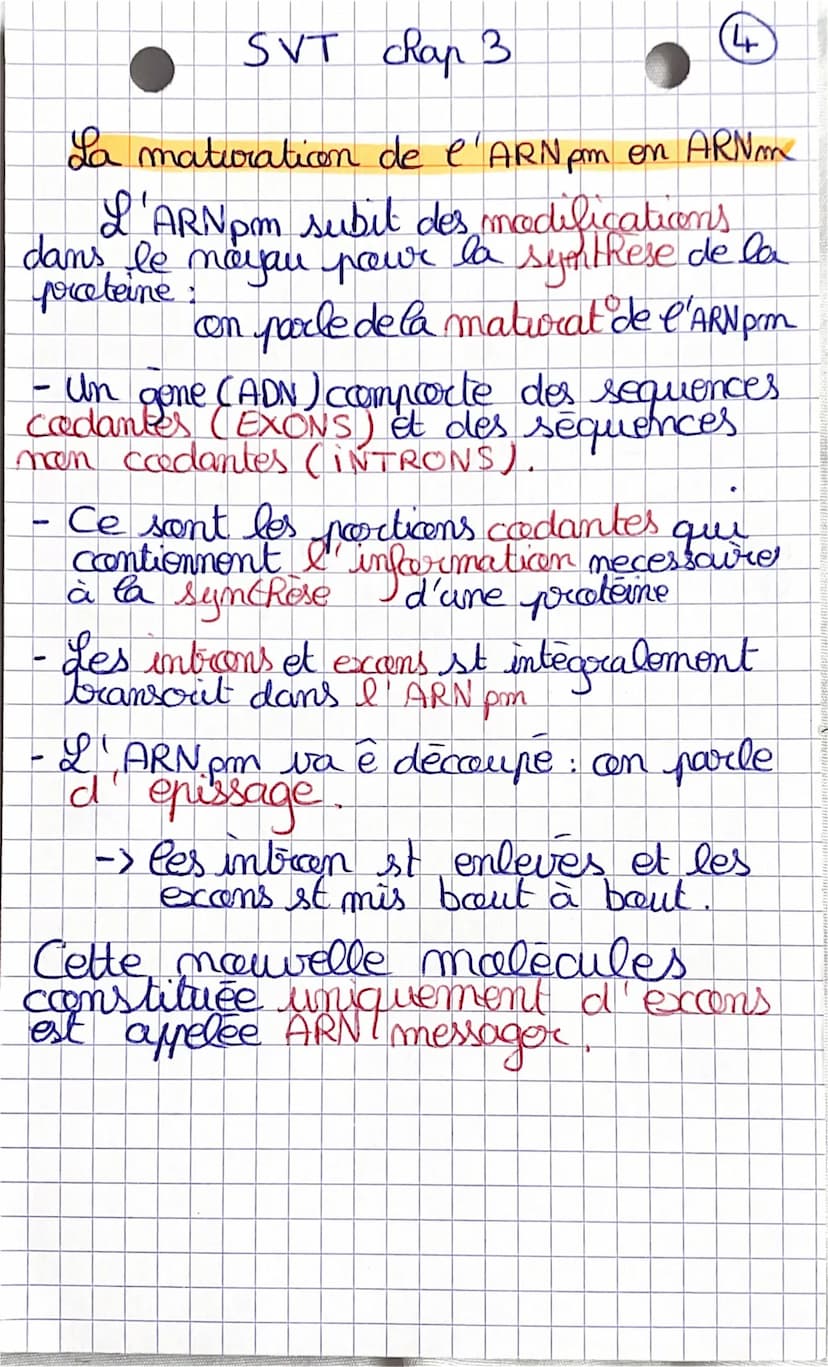 SVT chap 3
4
La maturation de l'ARNpm en ARNm
L'ARNpm subit des modifications
dans le noyau pour la synthèse de la
proteine :
on parle de la maturat° de l'ARNpm
- Un gène (ADN) comporte des sequences
codantes (EXONS) et des séquences
non codantes (iNTRONS).
- Ce sont les portions codantes qui
contiennent l'information necessaire
à la synthèse d'une protéine
- Les introns et exons st intégralement
transcrit dans l'ARN pm
- L'ARNpm va ê découpé : on parle
d'épissage.
-> les intron st enlevés et les
exons st mis bout à bout.
Cette nouvelle molécules
constituée uniquement d'exons
est appelée ARN messager.